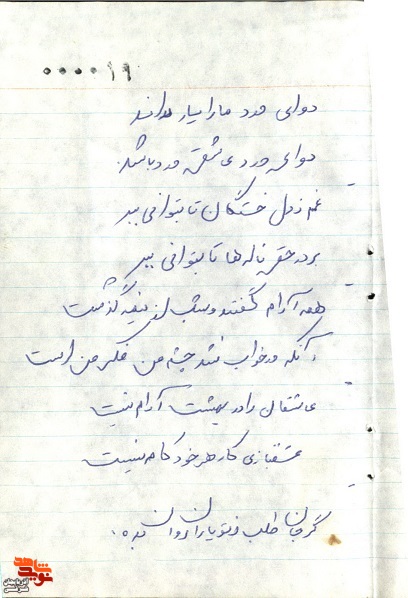 ۰۰۰۰۱۹
دوای درد ما را یار داند
دوای درد عاشق درد باشد
غم ز دل خستگان تا بتوانی ببر
بر در حق ناله ها تا بتوانی ببر
همه آرام گرفتند و شب از نیمه گذشت
آنکه در خواب نشد چشم من فکر من است
عاشقان را در بهشت آرام نیست
عشقبازی کار هر خود کام نیست
گر جان طلب دوان بده.
نوید شاهد
آذربایجان شرقی